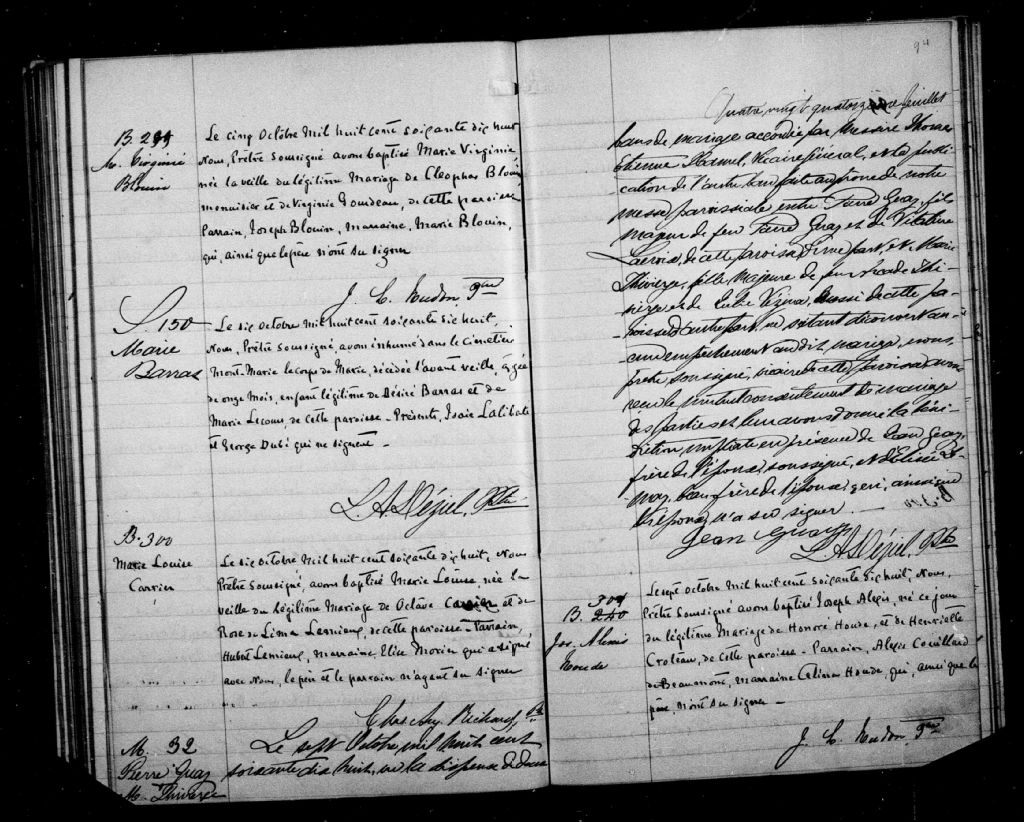 B. 299
M. Virginie
Blouin
Le cinq Octobre mil huit cent soixante dix huit
Nous, Prêtre soussigné avons baptisé Marie Virginie
née la veille du légitime Mariage de Cleophas Blouin
menuisier et de Virginie Bourdeau, de cette paroisse
Parrain, Joseph Blouin, Marraine, Marie Blouin,
qui, ainsi que le père n'ont su signer
S. 150
Marie
Barras
Le six Octobre mil huit cent soixante dix huit
Nous, Prêtre soussigné, avons inhumé dans le Cimetière
Mont-Marie le corps de Marie, décédée l'avant veille, agée
de onze mois, enfant légitime de Désiré Barras et de
Marie Lecours, de cette paroisse - Présents, Isaie Laliberté
et George Dubé qui ne signent -
L. A. Déziel, Ptre
B. 300
Marie Louise
Carrier
Le six octobre mil huit cent soixante dix huit, Nous
Prêtre soussigné, avons baptisé Marie Louise, née la
veille du légitime Mariage de Octave Carrier et de
Rose de Lima Lemieux, de cette paroisse - Parrain,
Hubert Lemieux, marraine, Elise Morin qui a signé
avec nous, le père et le parrain n'ayant su signer
Chas Aug. Richard, Ptre
M. 32
Pierre Guay
M. Thivierge
Le sept Octobre mil huit cent
soixante dix huit, vu la dispense de deux
94
Quatre vingt quatorzième feuillet
bans de mariage accordée par Messire Thomas
Etienne Hamel, Vicaire Général, et la publi-
cation de l'autre ban faite au prône de notre
messe paroissiale entre Pierre Guay, fils
majeur de feu Pierre Guay et de Vitaline
Lacroix, de cette paroisse d'une part, et Marie
Thivierge, fille majeure de feu Thi-
vierge et de Vézina, aussi de cette pa-
roisse d'autre part, ne s'étant découvert au-
cun empêchement au dit mariage, nous
prêtre soussigné, vicaire de cette paroisse avons
reçu le mutuel consentement de mariage
des parties et leur avons donné la béné-
diction nuptiale en présence de Jean Guay,
frère de l'époux soussigné, et d'
beau frère de l'épouse qui, ainsi que
l'épouse n'a su signer
Jean Guay
L A Déziel, Ptre
B. 301
240
Jos. Alexis
Houde
Le sept Octobre mil huit cent soixante dix huit, Nous,
Prêtre soussigné avons baptisé Joseph Alexis, né ce jour
du légitime Mariage de Honoré Houde, et de Henriette
Croteau, de cette paroisse - Parrain, Alexis Couillard
de Beaumont, marraine Célina Houde, qui, ainsi que le
père, n'ont su signer -